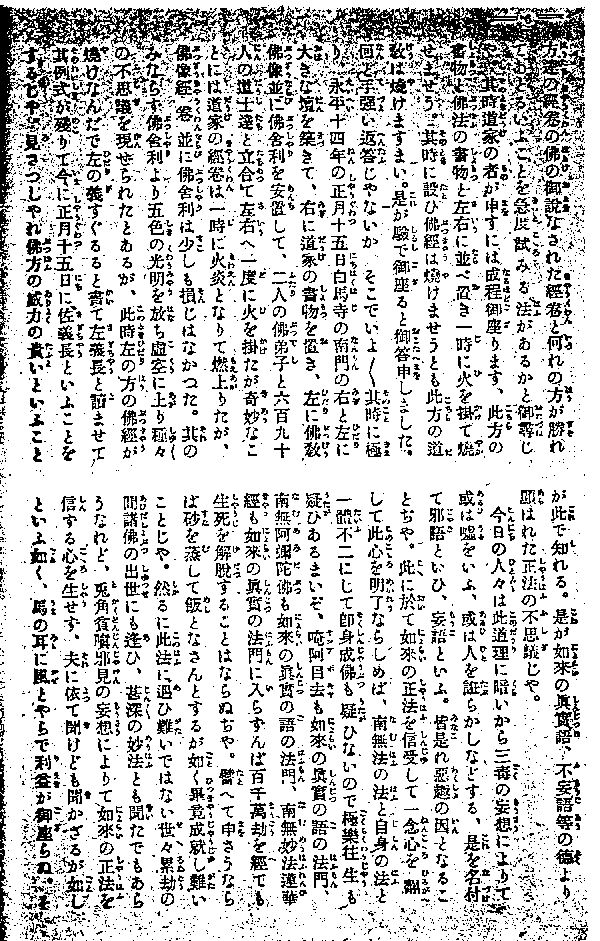 方達の經卷の佛の御說なされた經卷と何れの方が勝れ
てばとるいふことを急度試みる法があるかと御尋じ
や、其時道家の者が申すには成程御座ります、此方の
書物と佛法の書物と左右に並べ置き一時に火を掛て燒
せませう。其時に設ひ佛經は燒けませうとも此方の道
敎は燒けますまい。是が驗で御座ると御答申しました。
何ど手强い返答じやないか そこでいよ〱其時に極
り、永平十四年の正月十五日白馬寺の南門の右と左に
大きな壇を築きて、右に道家の書物を置き、左に佛敎
佛像並に佛舍利を安置して、二人の佛弟子と六百九十
人の道士達と立合て左右へ一度に火を掛たが奇妙なこ
とには道家の經卷は一時に火炎となりて燃上りたが、
佛像經卷並に佛舍利は少しも損じはなかつた。其の
みならず佛舍利より五色の光明を放ち虛空に上り種々
の不思議を現せられたとあるが、此時左の方の佛經が
燒けなんだで左の義すぐるると書て左義長と讀ませて
其例式が殘りて今に正月十五日に佐義長といふことを
するじや。見さつしやれ佛方の威力の貴いといふこと
が此で知れる。是が如來の眞實語、不妄語等の德より
顯はれた正法の不思議じや。
今日の人々は此道理に暗いから三毒の妄想によりて
或は噓をいふ、或は人を誑らかしなどする、是を名付
て邪語といひ、妄語といふ。皆是れ惡趣の因となるこ
とぢや。此に於て如來の正法を信受して一念心を飜
して此心を明了ならしめば、南無法の法と自身の法と
一體不二にして卽身成佛も疑ひないので極樂往生も
疑ひあるまいぞ、唵阿目去も如來の眞實の語の法門、
南無阿彌陀佛も如來の眞實の語の法門、南無妙法蓮華
經も如來の眞實の法門に入らずんば百千萬劫を經ても
生死を解脫することはならぬぢや。譬へて申さうなら
ば砂を蒸して飯となさんとするが如く畢竟成就し難い
ことじや。然るに此法に遇ひ難いではない世々累劫の
間諸佛の出世にも逢ひ、甚深の妙法とも聞たでもあら
うなれど、兎角貪嗔邪見の妄想によりて如來の正法を
信する心を生せず、夫に依て聞けども聞かざるが如し
といふ如く、馬の耳に風とやらで利益が御座らぬ。そ